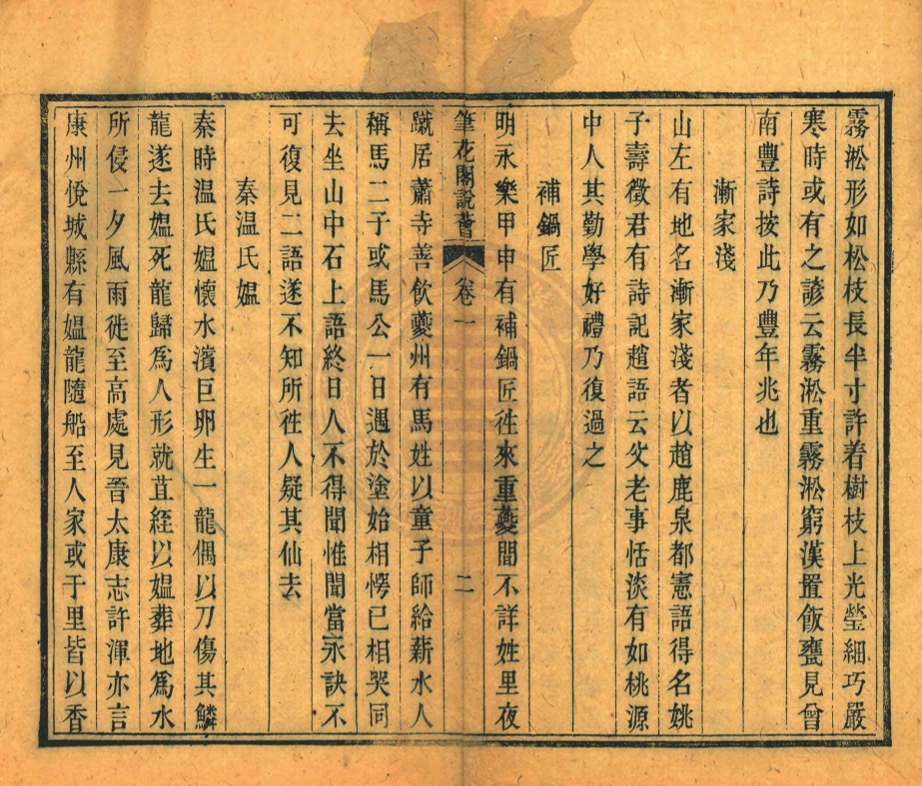 霧淞形如松枝長半寸許着樹枝上光瑩細巧嚴
寒時或有之諺云霧淞重霧淞窮漢置飯甕見曾
南豐詩按此乃豐年兆也
漸家淺
山左有地名漸家淺者以趙鹿泉都憲語得名姚
子壽徵君有詩記趙語云父老事恬淡有如桃源
中人其勤學好禮乃復過之
補鍋匠
明永樂甲申有補鍋匠徃來重夔間不詳姓里夜
筆花閣說薈 卷一 二
蹴居蕭寺善飲夔州有馬姓以童子師給薪水人
稱馬二子或馬公一日遇於塗始相愕已相哭同
去坐山中石上語終日人不得聞惟聞當永訣不
可復見二語遂不知所徃人疑其仙去
秦温氏媪
秦時温氏媪懷水濱巨卵生一龍偶以刀傷其鱗
龍遂去媪死龍歸爲人形就苴絰以媪葬地爲水
所侵一夕風雨徙至高處見晉太康志許渾亦言
康州悅城縣有媪龍隨船至人家或于里皆以香